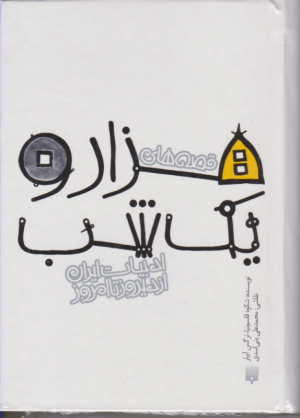 قصه‌های
هزار و
یک شب
ادبیات ایران
از دیروز تا امروز
نویسنده: شکوه قاسم‌نیا، نرگس آبیار
نقاشی: محمدعلی بنی‌اسدی